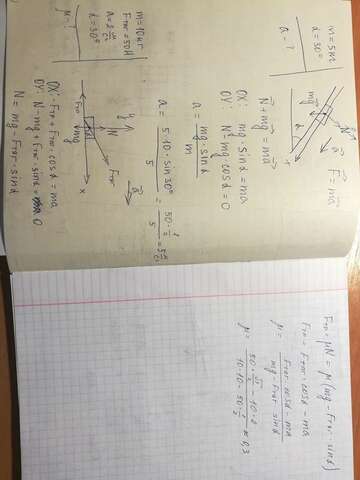 m = 5 кг
α = 30°
a - ?
N
mg
α
a
F = ma
N + mg = ma
OX: mg · sin α = ma
OY: N - mg cos α = 0
a = mg · sin α / m
a = 5 · 10 · sin 30° / 5 = 50 · 1/2 / 5 = 5 м/с²
m = 10 кг
Fтяг = 50 Н
a = 2 м/с²
α = 30°
μ - ?
y
a
N
Fтр
Fтяг
mg
x
OX: -Fтр + Fтяг · cos α = ma
OY: N - mg + Fтяг · sin α = 0
N = mg - Fтяг · sin α
Fтр = μN = μ(mg - Fтяг · sin α)
Fтр = Fтяг · cos α - ma
μ = Fтяг · cos α - ma / mg - Fтяг · sin α